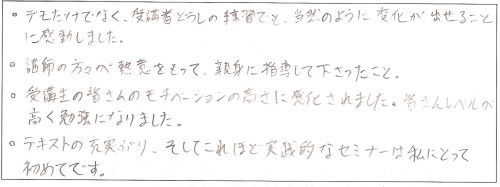 ○ デモだけでなく、受講者どうしの練習でも、当然のように変化が出せること
に感動しました。
○ 講師の方々が熱意をもって、親身に指導して下さったこと。
○ 受講生の皆さんのモチベーションの高さに感化されました。皆さんレベルが
高く勉強になりました。
○ テキストの充実ぶり、そしてこれほど実践的なセミナーは私にとって
初めてです。